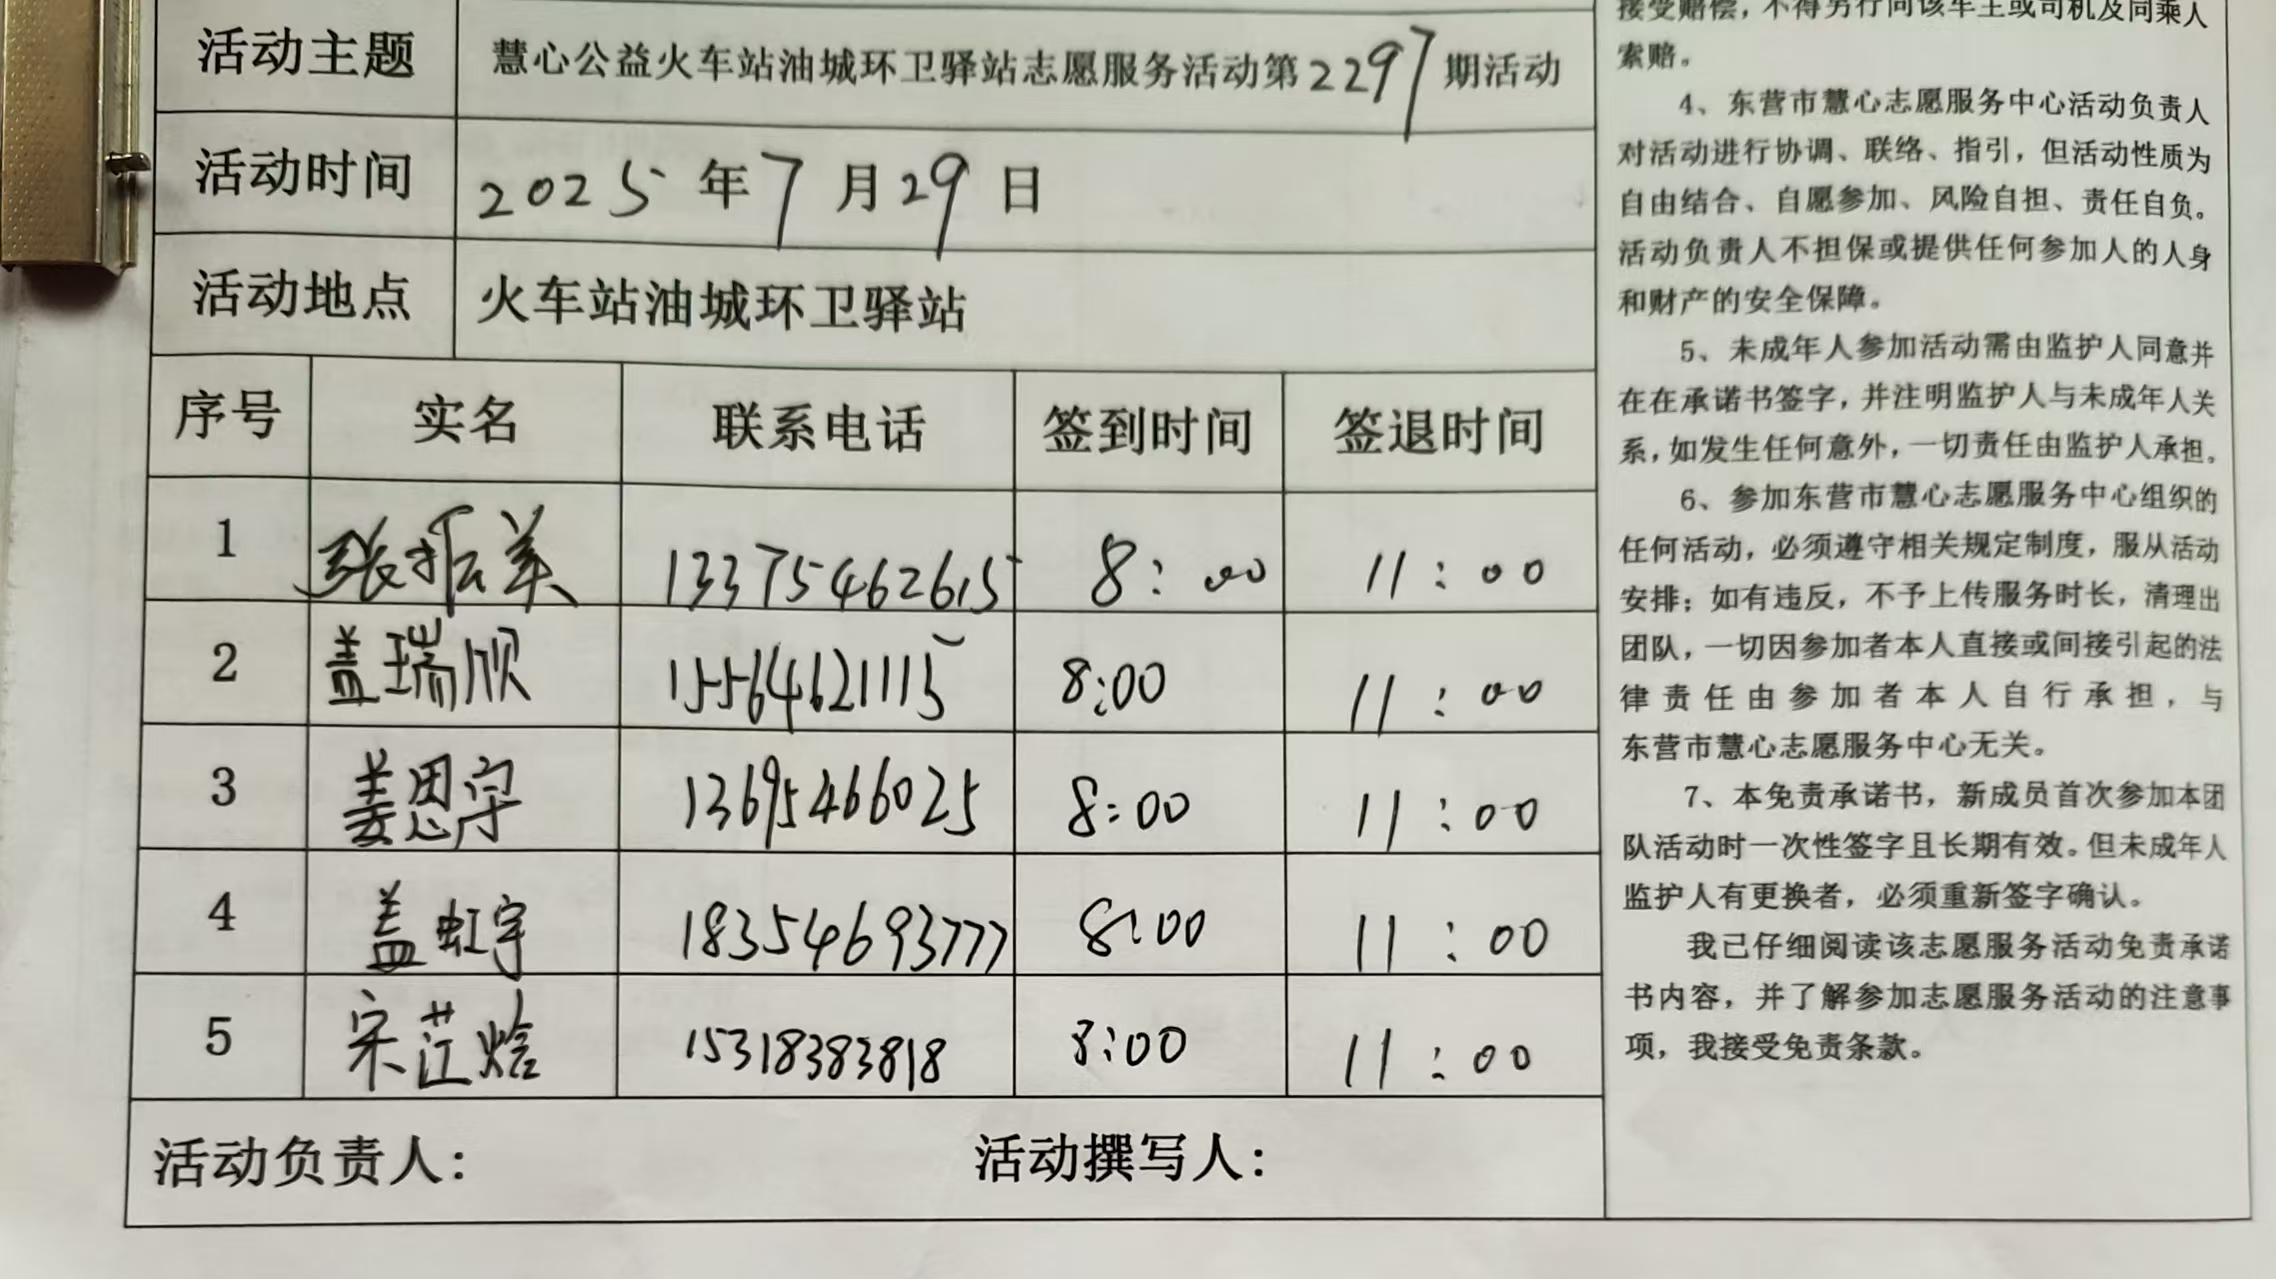 活动主题 慧心公益火车站油城环卫驿站志愿服务活动第2297期活动
活动时间 2025年7月29日
活动地点 火车站油城环卫驿站
序号 实名 联系电话 签到时间 签退时间
1 张振美 13375462615 8:00 11:00
2 盖瑞欣 15564621115 8:00 11:00
3 姜恩守 13695466025 8:00 11:00
4 盖虹宇 18354693777 8:00 11:00
5 宋茳焓 15318383818 8:00 11:00
活动负责人: 活动撰写人:
接受赔偿，不得另行向该车主或司机及同乘人
索赔。
4、东营市慧心志愿服务中心活动负责人
对活动进行协调、联络、指引，但活动性质为
自由结合、自愿参加、风险自担、责任自负。
活动负责人不担保或提供任何参加人的人身
和财产的安全保障。
5、未成年人参加活动需由监护人同意并
在在承诺书签字，并注明监护人与未成年人关
系，如发生任何意外，一切责任由监护人承担。
6、参加东营市慧心志愿服务中心组织的
任何活动，必须遵守相关规定制度，服从活动
安排；如有违反，不予上传服务时长，清理出
团队，一切因参加者本人直接或间接引起的法
律责任由参加者本人自行承担，与
东营市慧心志愿服务中心无关。
7、本免责承诺书，新成员首次参加本团
队活动时一次性签字且长期有效。但未成年人
监护人有更换者，必须重新签字确认。
我已仔细阅读该志愿服务活动免责承诺
书内容，并了解参加志愿服务活动的注意事
项，我接受免责条款。